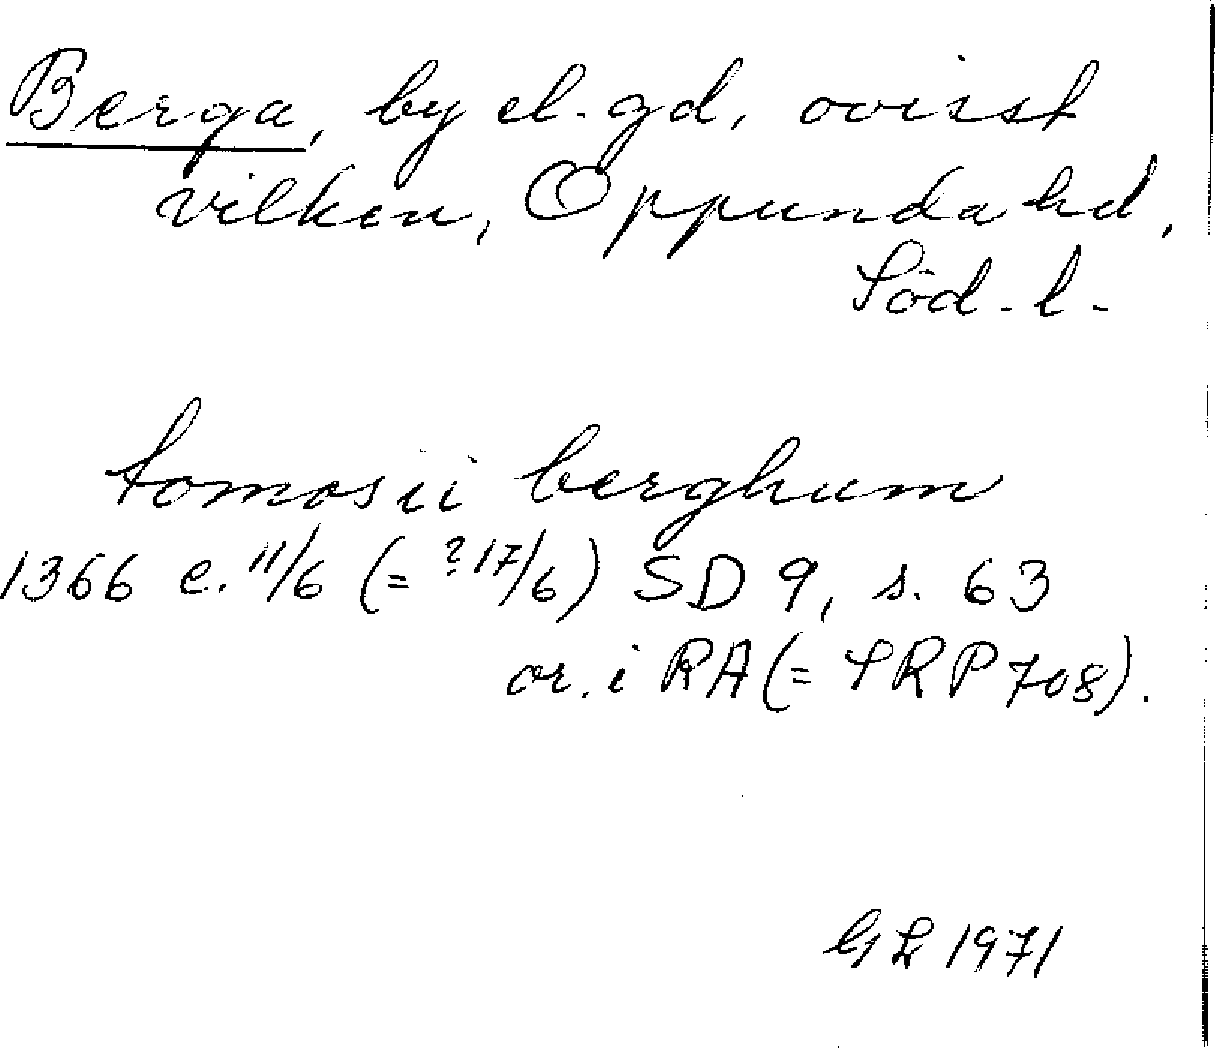 Berga, by el. gd, ovisst
vilken, Oppunda hd,
Söd. l.
tomos ii berghum
1366 e. 11/6 (= ? 17/6) SD 9, s. 63
or. i RA (= SRP 708).
GL 1971